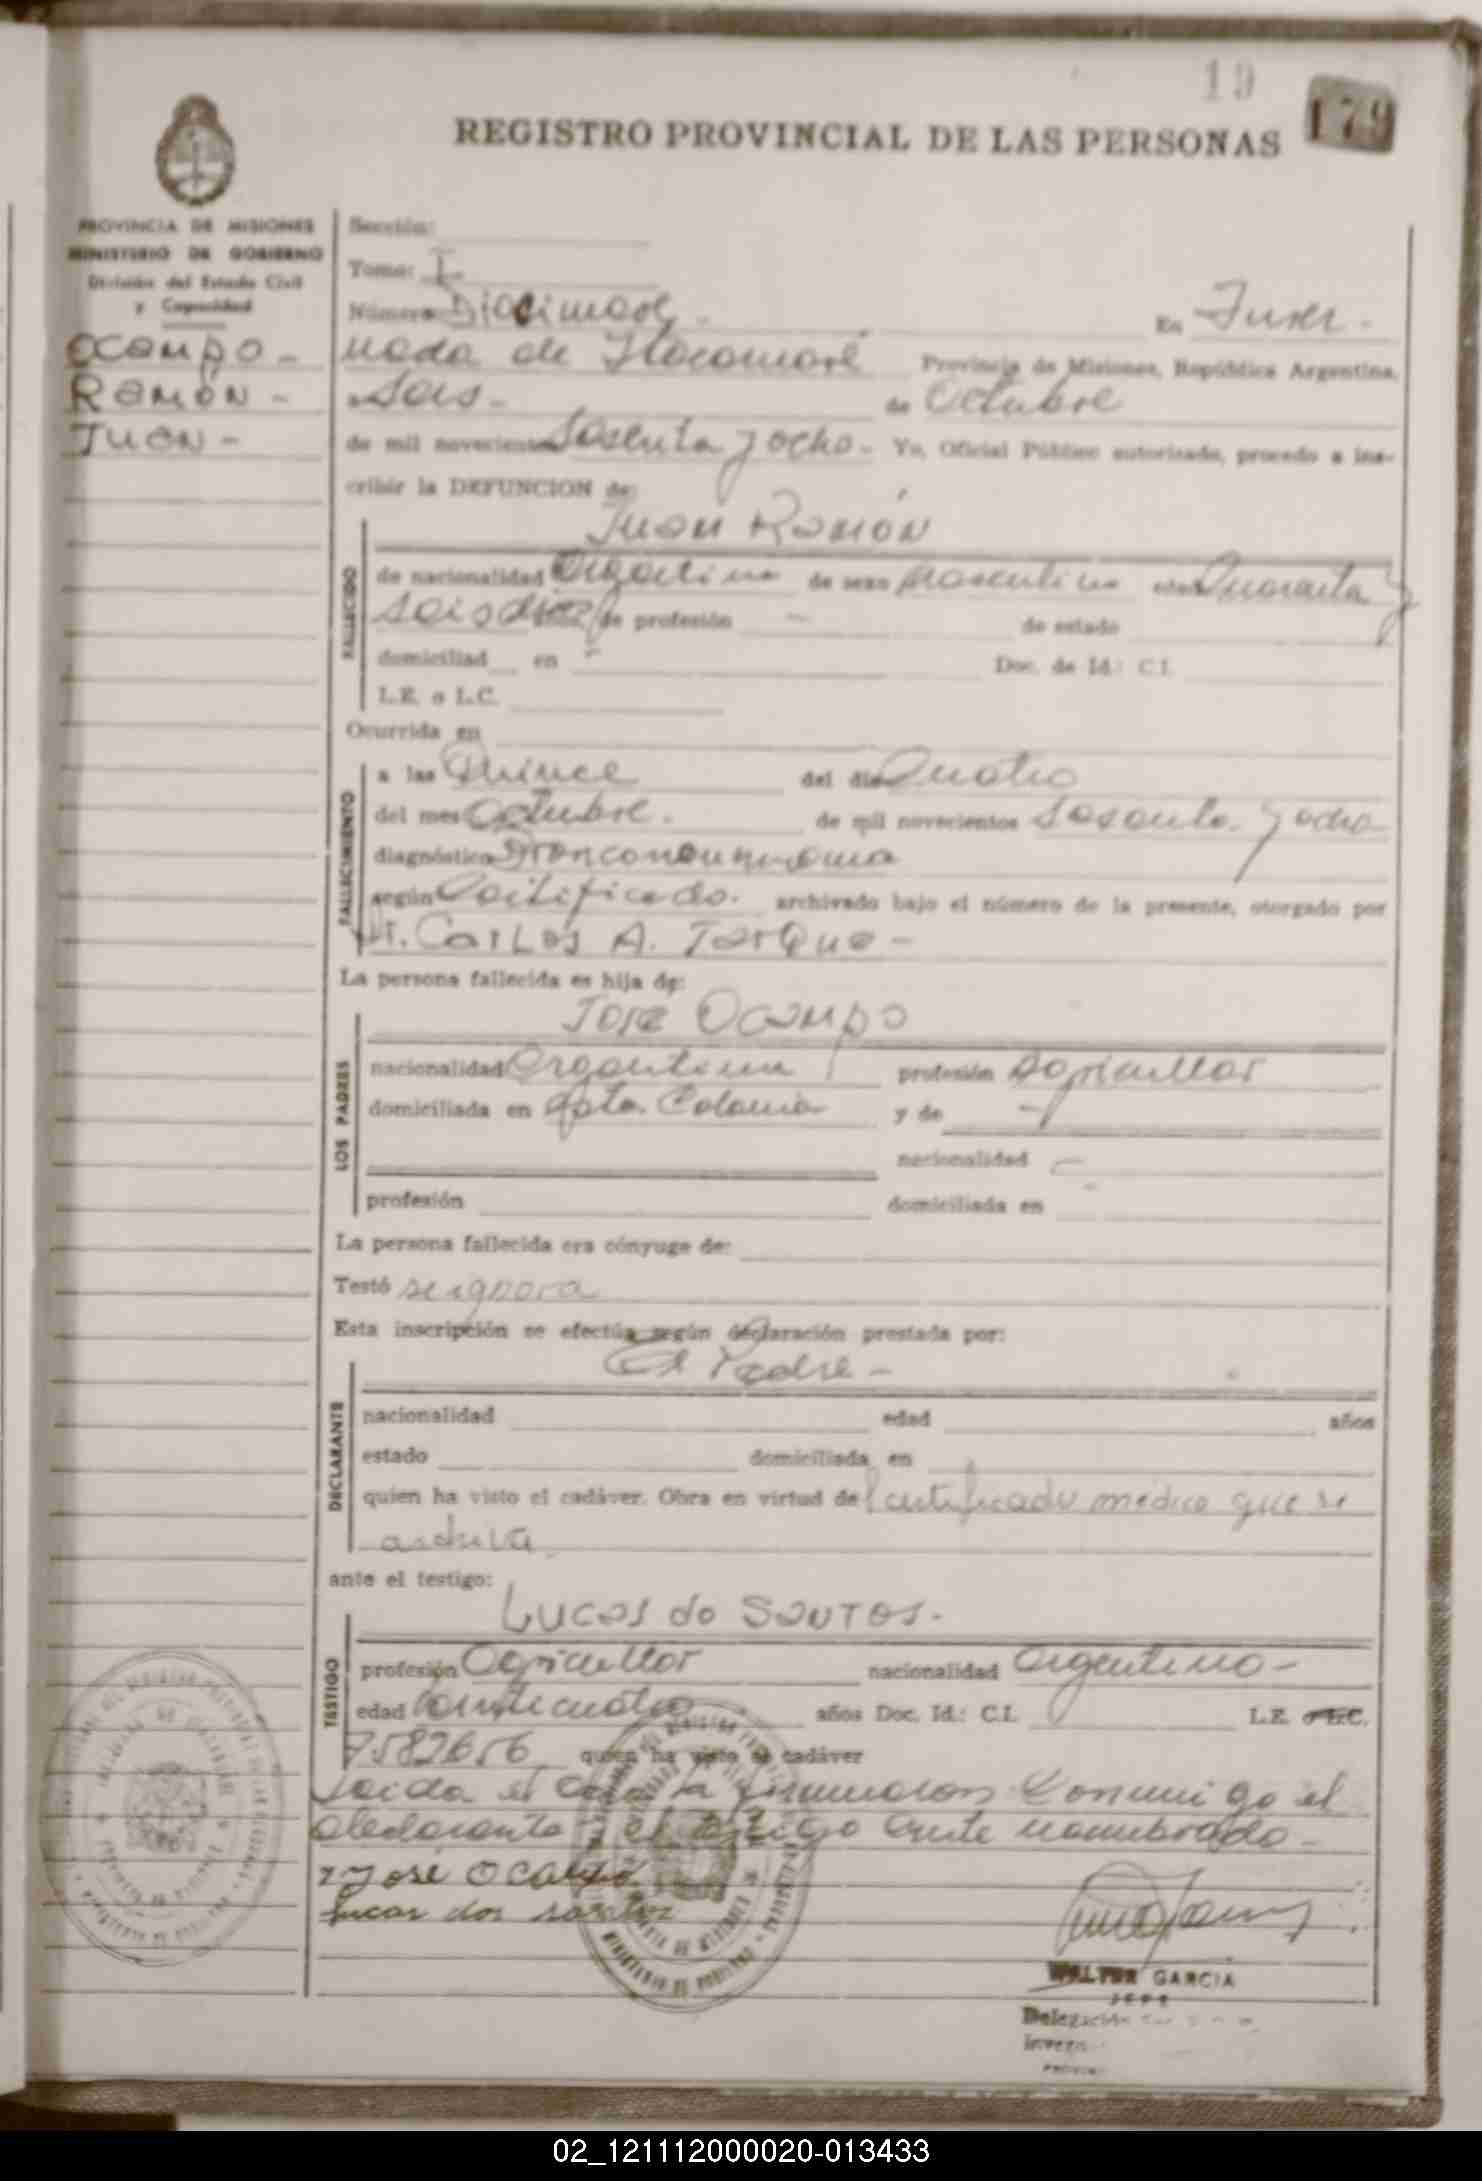 19
179
REGISTRO PROVINCIAL DE LAS PERSONAS
PROVINCIA DE MISIONES
MINISTERIO DE GOBIERNO
División del Estado Civil
y Capacidad
Ocampo -
Ramón -
Juan -
Sección:
Tomo: I
Número: En Inver-
nada de Itacaruaré Provincia de Misiones, República Argentina,
a Seis - de Octubre
de mil novecientos Sesenta y ocho - Yo, Oficial Público autorizado, procedo a ins-
cribir la DEFUNCION de:
Juan Ramón
FALLECIDO
de nacionalidad Argentina de sexo Masculino edad Cuarenta y
Seis de profesión - de estado
domiciliad en - Doc. de Id.: C.I.
L.E. o L.C.
Ocurrida en
FALLECIMIENTO
a las Quince del día Cuatro
del mes Octubre. de mil novecientos Sesenta y ocho
diagnóstico Bronconeumonia
según Certificado. archivado bajo el número de la presente, otorgado por
Dr. Carlos A. Tarque -
La persona fallecida es hija de:
José Ocampo
LOS PADRES
nacionalidad Argentina profesión Agricultor
domiciliada en Colonia y de -
nacionalidad -
profesión domiciliada en
La persona fallecida era cónyuge de:
Testó se ignora
Esta inscripción se efectúa según declaración prestada por:
El Padre -
DECLARANTE
nacionalidad edad años
estado domiciliada en
quien ha visto el cadáver. Obra en virtud del certificado médico que se
archiva
ante el testigo:
Lucas do Santos -
TESTIGO
profesión Agricultor nacionalidad Argentino -
edad años Doc. Id.: C.I. L.E. o L.C.
7582656 quien ha visto el cadáver
Leida el Acta la firmaron Conmigo el
declarante y el testigo Ante nombrado -
José Ocampo
Lucas dos santos
WALTER GARCIA
JEFE
Delegación
02_121112000020-013433